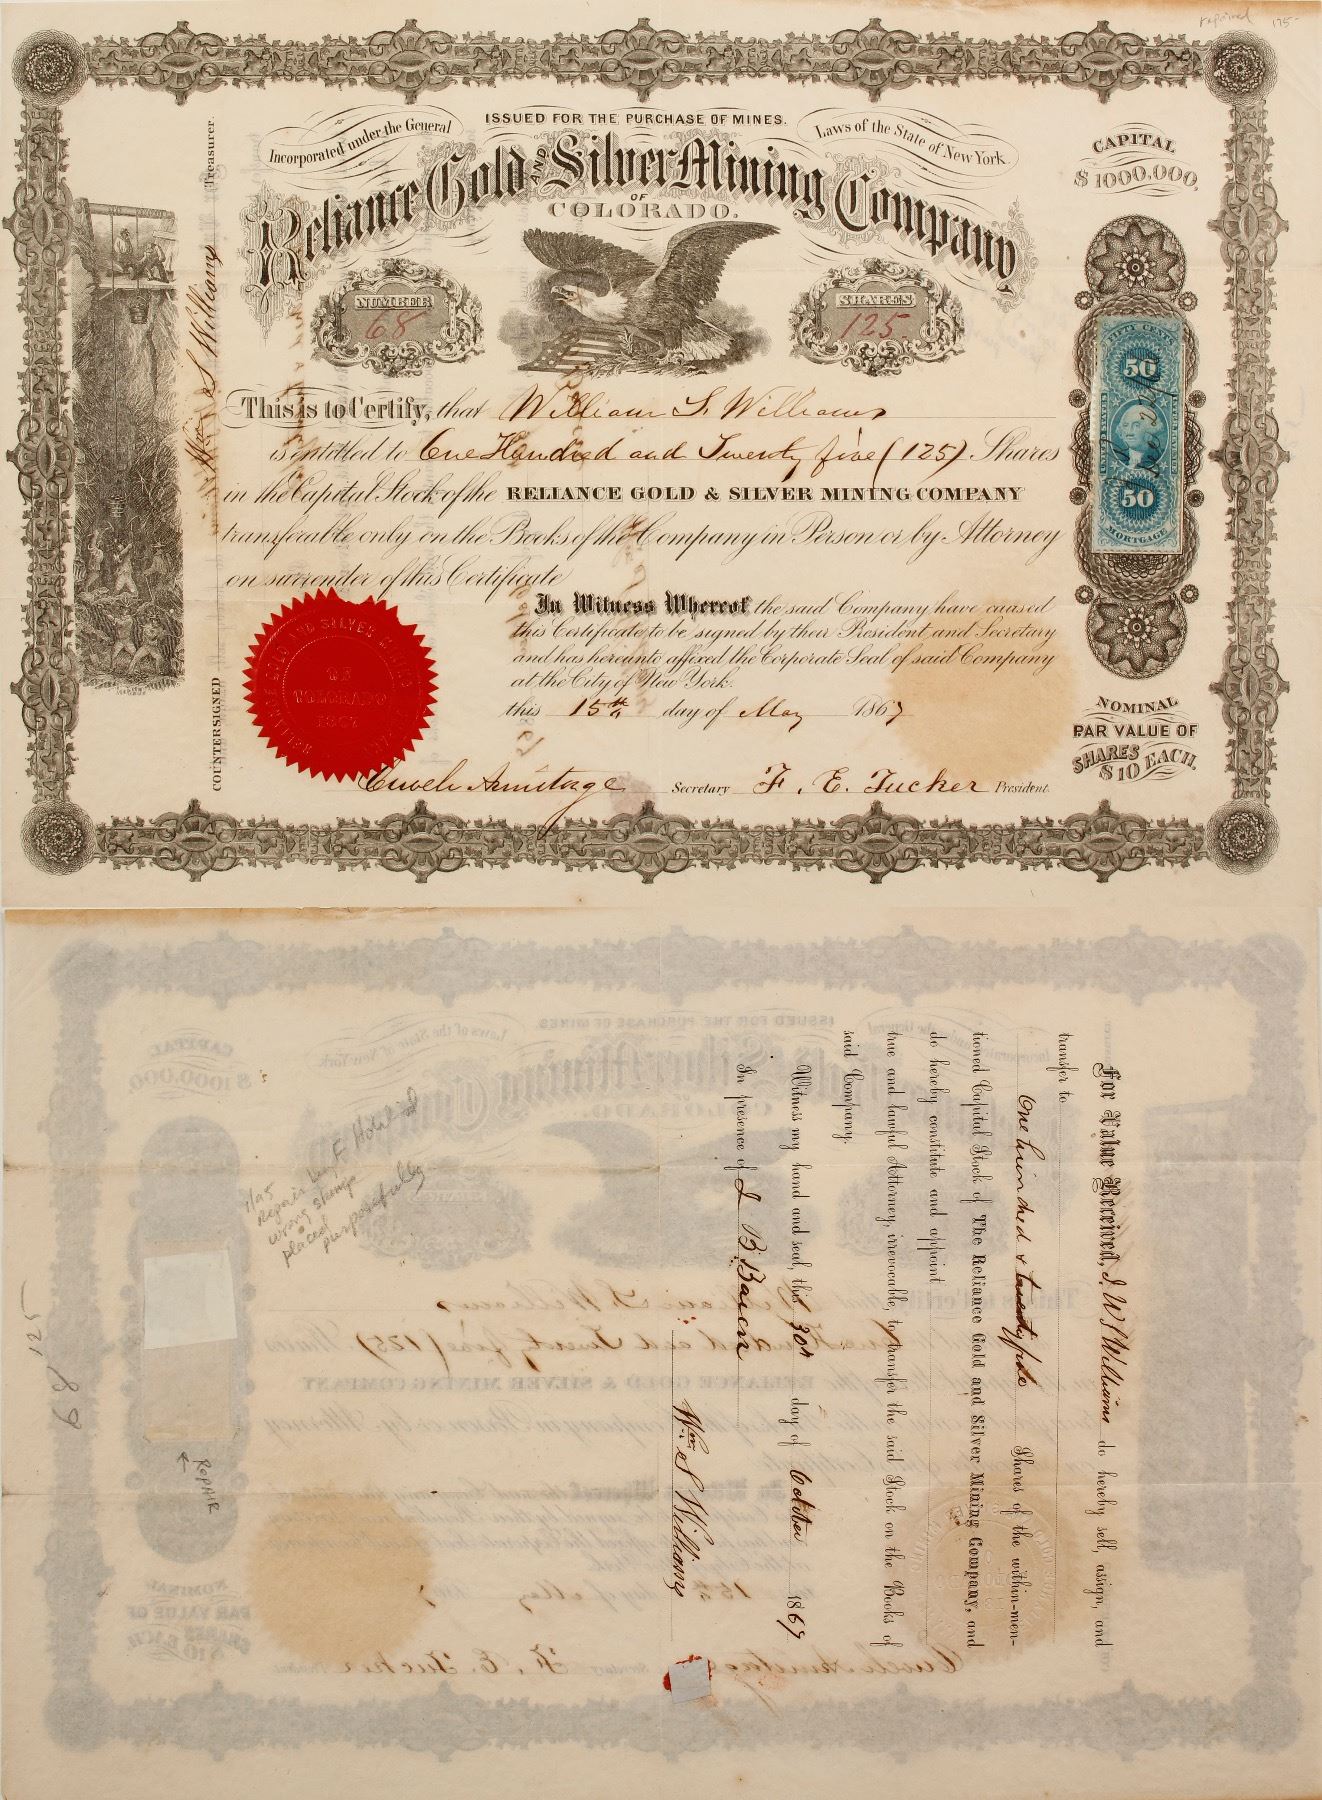 repaired 175-
ISSUED FOR THE PURCHASE OF MINES.
Incorporated under the General
Laws of the State of New York.
Reliance Gold AND Silver Mining Company,
OF
COLORADO.
CAPITAL
$1000,000,
NUMBER
68
SHARES
125.
This is to Certify, that William S. Williams
is entitled to One Hundred and Twenty five (125) Shares
in the Capital Stock of the RELIANCE GOLD & SILVER MINING COMPANY
transferable only on the Books of the Company in Person or by Attorney
on surrender of this Certificate
In Witness Whereof the said Company have caused
this Certificate to be signed by their President and Secretary
and has hereunto affixed the Corporate Seal of said Company
at the City of New York.
this 15th day of May 1867
Armitage Secretary F. E. Tucker President.
COUNTERSIGNED Wm S Williams Treasurer.
RELIANCE GOLD AND SILVER MINING
OF
COLORADO
1867
FIFTY CENTS
50
UNITED STATES
INTER. REVENUE
50
MORTGAGE
NOMINAL
PAR VALUE OF
SHARES
$10 EACH.
For Value Received, I, W S Williams do hereby sell, assign, and
transfer to
One hundred & twenty five Shares of the within-men-
tioned Capital Stock of The Reliance Gold and Silver Mining Company, and
do hereby constitute and appoint
true and lawful Attorney, irrevocable, to transfer the said Stock on the Books of
said Company.
Witness my hand and seal, this 30th day of October 1867
In presence of J B Bacon
Wm S Williams
1/95
Repair by F Howard
wrong stamp
placed
purposefully
REPAIR
68/125